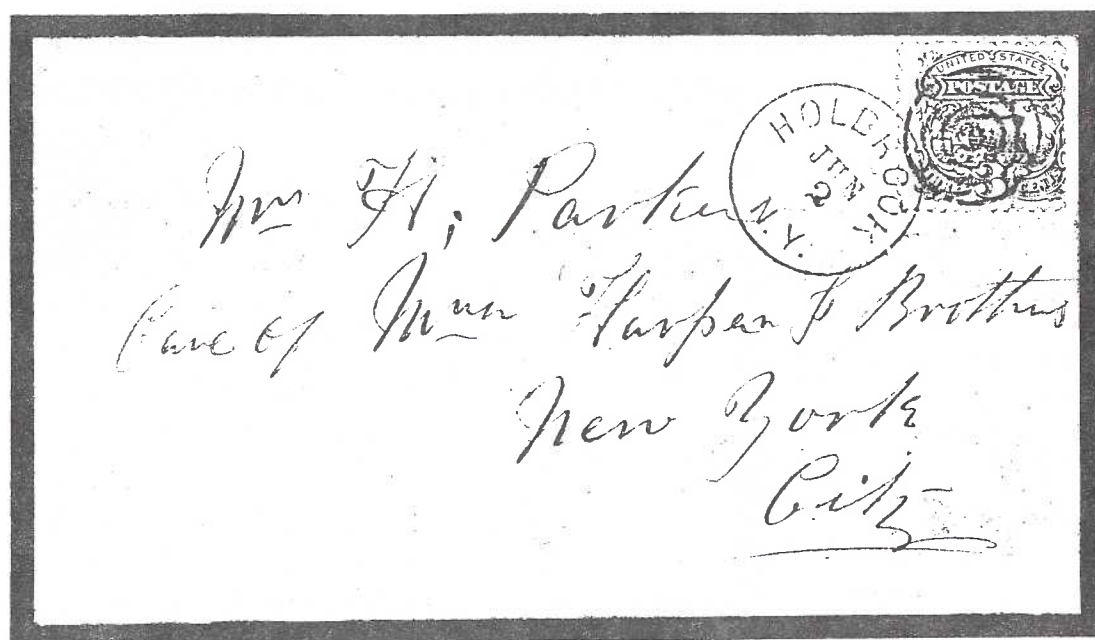 UNITED STATES
POSTAGE
HOLBROOK
JUN
2
N.Y.
Mr H. Parkins
Care of Messrs Harper & Brothers
New York
City